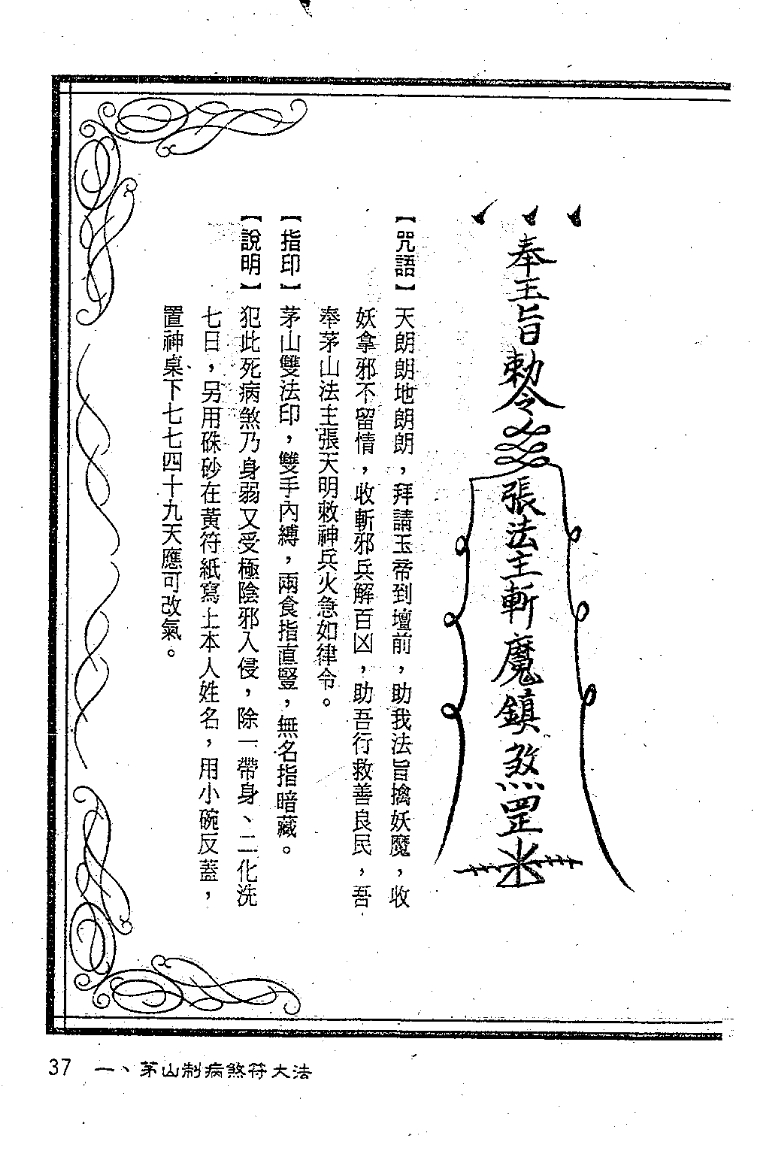 奉玉旨勅令
張法主斬魔鎮煞罡
【咒語】天朗朗地朗朗，拜請玉帝到壇前，助我法旨擒妖魔，收
妖拿邪不留情，收斬邪兵解百凶，助吾行救善良民，吾
奉茅山法主張天明敕神兵火急如律令。
【指印】茅山雙法印，雙手內縛，兩食指直豎，無名指暗藏。
【說明】犯此死病煞乃身弱又受極陰邪入侵，除一帶身、二化洗
七日，另用硃砂在黃符紙寫上本人姓名，用小碗反蓋，
置神桌下七七四十九天應可改氣。
37 一、茅山制病煞符大法